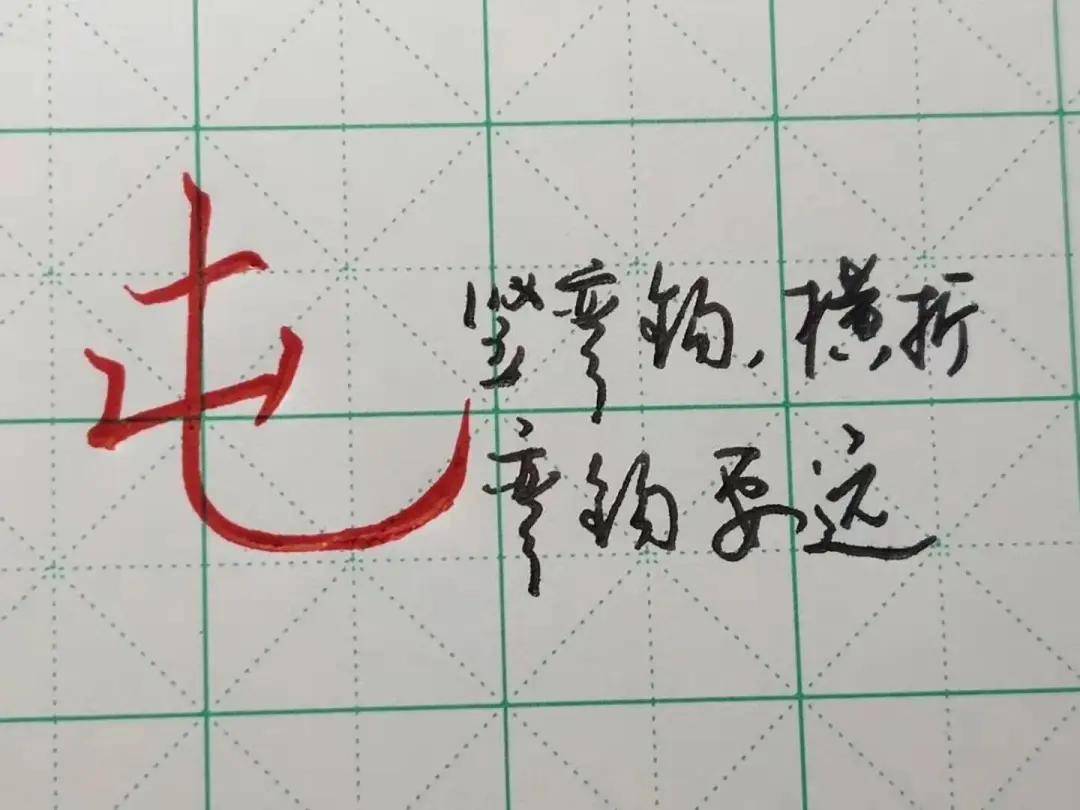 屯
竖弯钩,横折
弯钩要远